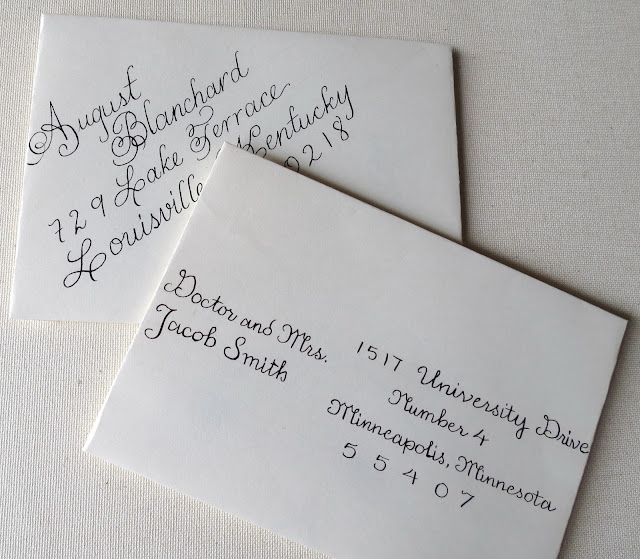 August
Blanchard
729 Lake Terrace
Louisville Kentucky
0218
Doctor and Mrs.
Jacob Smith
1517 University Drive
Number 4
Minneapolis, Minnesota
55407